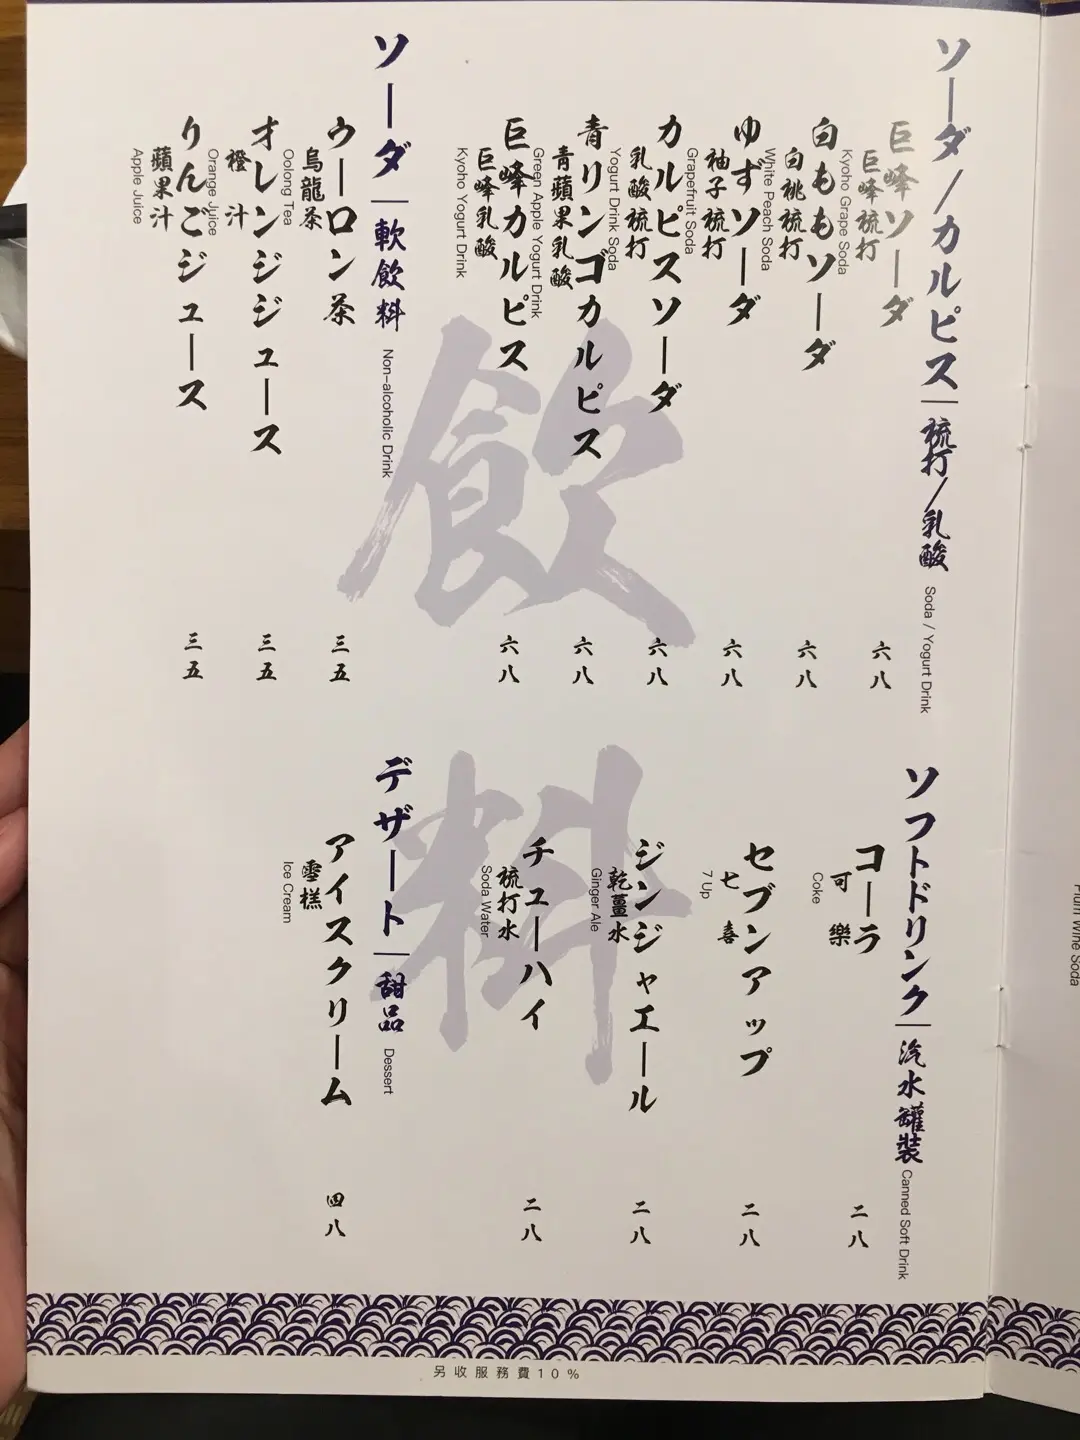 ソーダ/カルピス｜梳打/乳酸 Soda / Yogurt Drink
巨峰ソーダ 六八
巨峰梳打
Kyoho Grape Soda
白ももソーダ 六八
白桃梳打
White Peach Soda
ゆずソーダ 六八
柚子梳打
Grapefruit Soda
カルピスソーダ 六八
乳酸梳打
Yogurt Drink Soda
青リンゴカルピス 六八
青蘋果乳酸
Green Apple Yogurt Drink
巨峰カルピス 六八
巨峰乳酸
Kyoho Yogurt Drink
ソーダ｜軟飲料 Non-alcoholic Drink
ウーロン茶 三五
烏龍茶
Oolong Tea
オレンジジュース 三五
橙汁
Orange Juice
りんごジュース 三五
蘋果汁
Apple Juice
飲料
ソフトドリンク｜汽水罐裝 Canned Soft Drink
コーラ 二八
可樂
Coke
セブンアップ 二八
七喜
7 Up
ジンジャエール 二八
乾薑水
Ginger Ale
チューハイ 二八
梳打水
Soda Water
デザート｜甜品 Dessert
アイスクリーム 四八
雪糕
Ice Cream
另收服務費10%
Plum Wine Soda